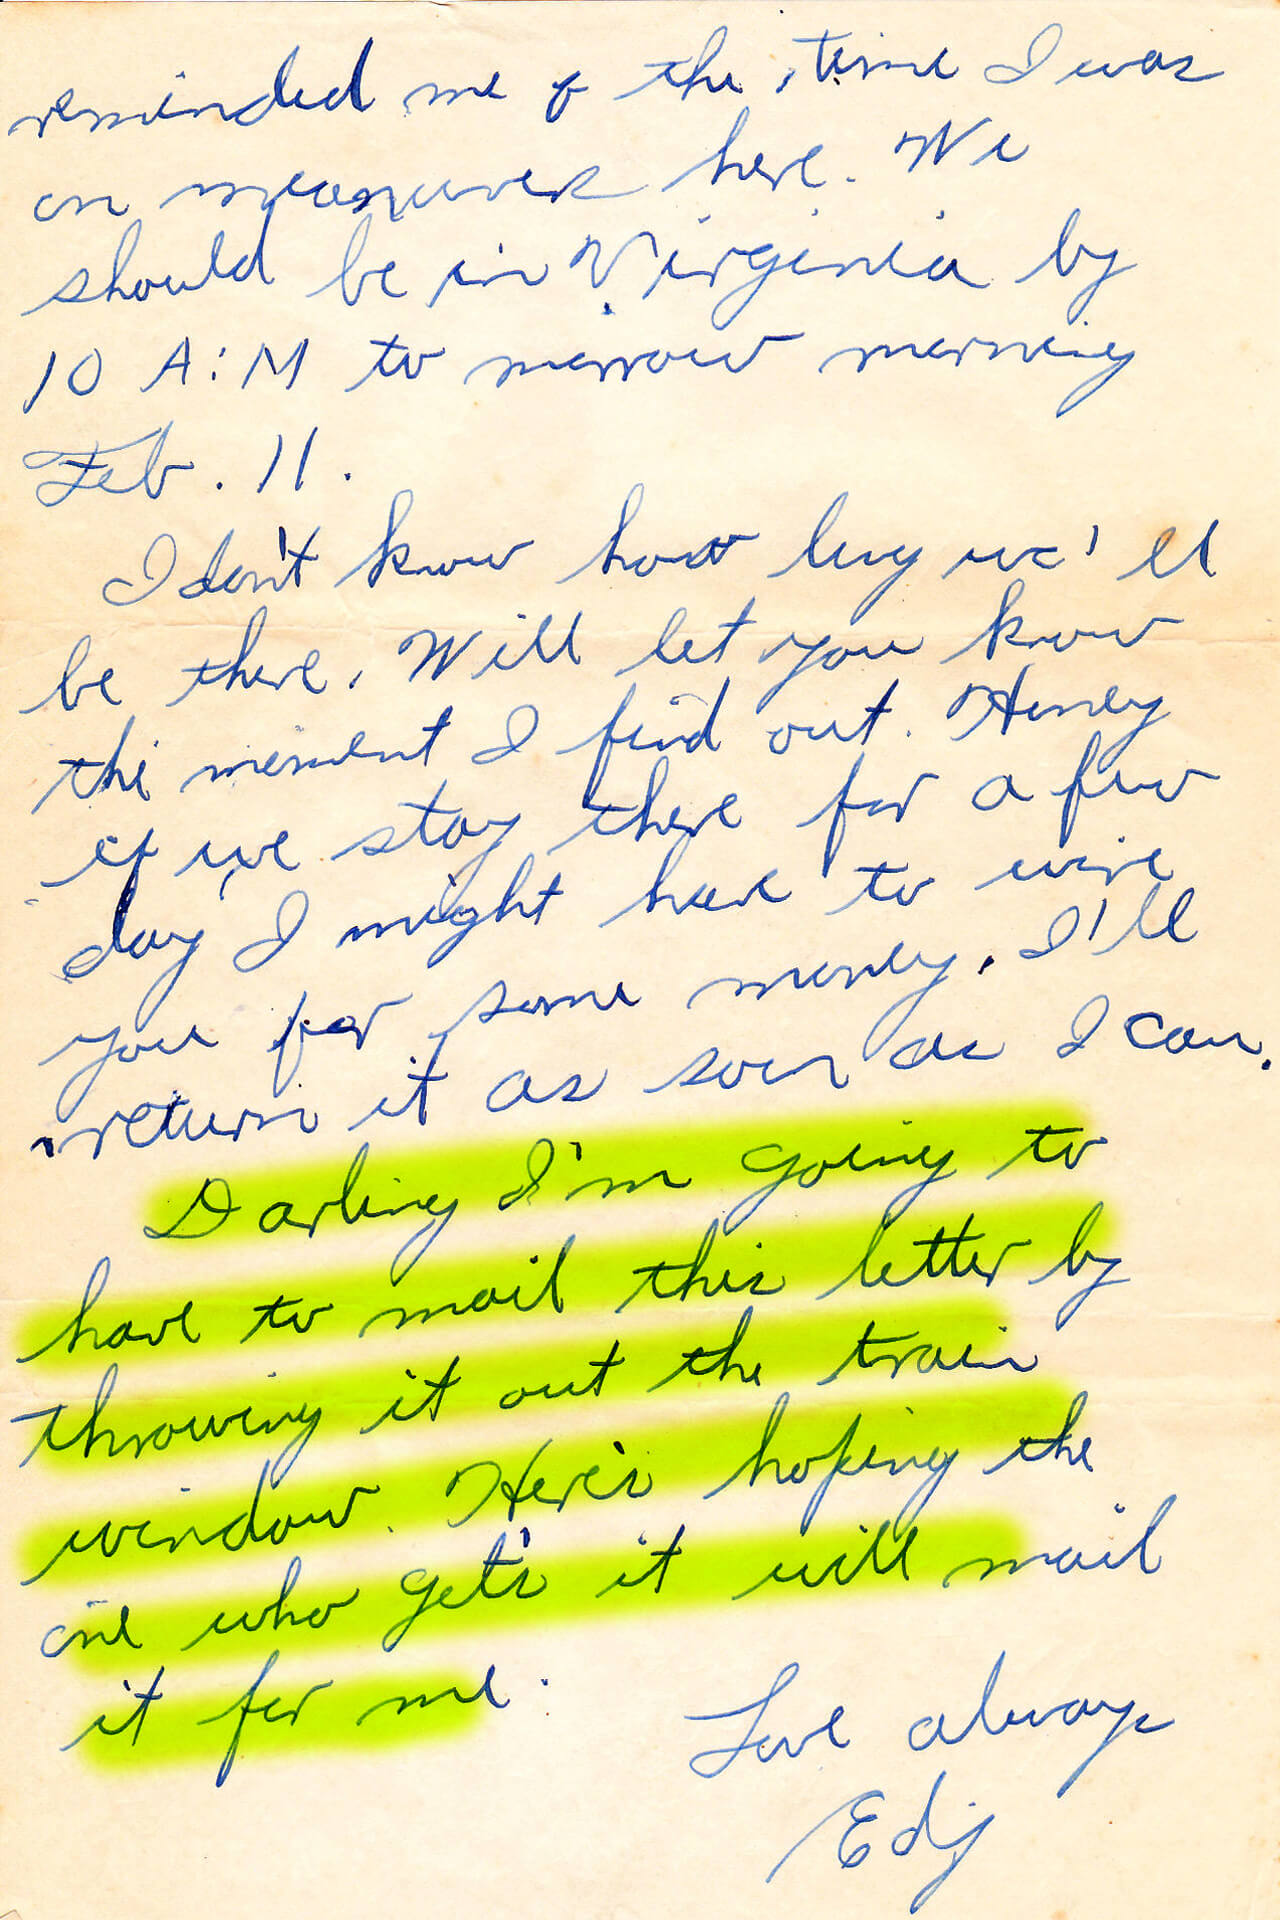 reminded me of the time I was
on meanuvers here. We
should be in Virginia by
10 A:M to morrow morning
Feb. 11.
I don't know how long we'll
be there. Will let you know
the moment I find out. Honey
if we stay there for a few
day I might have to wire
you for some money. I'll
return it as soon as I can.
Darling I'm going to
have to mail this letter by
throwing it out the train
window. Here's hoping the
one who gets it will mail
it for me.
Love always